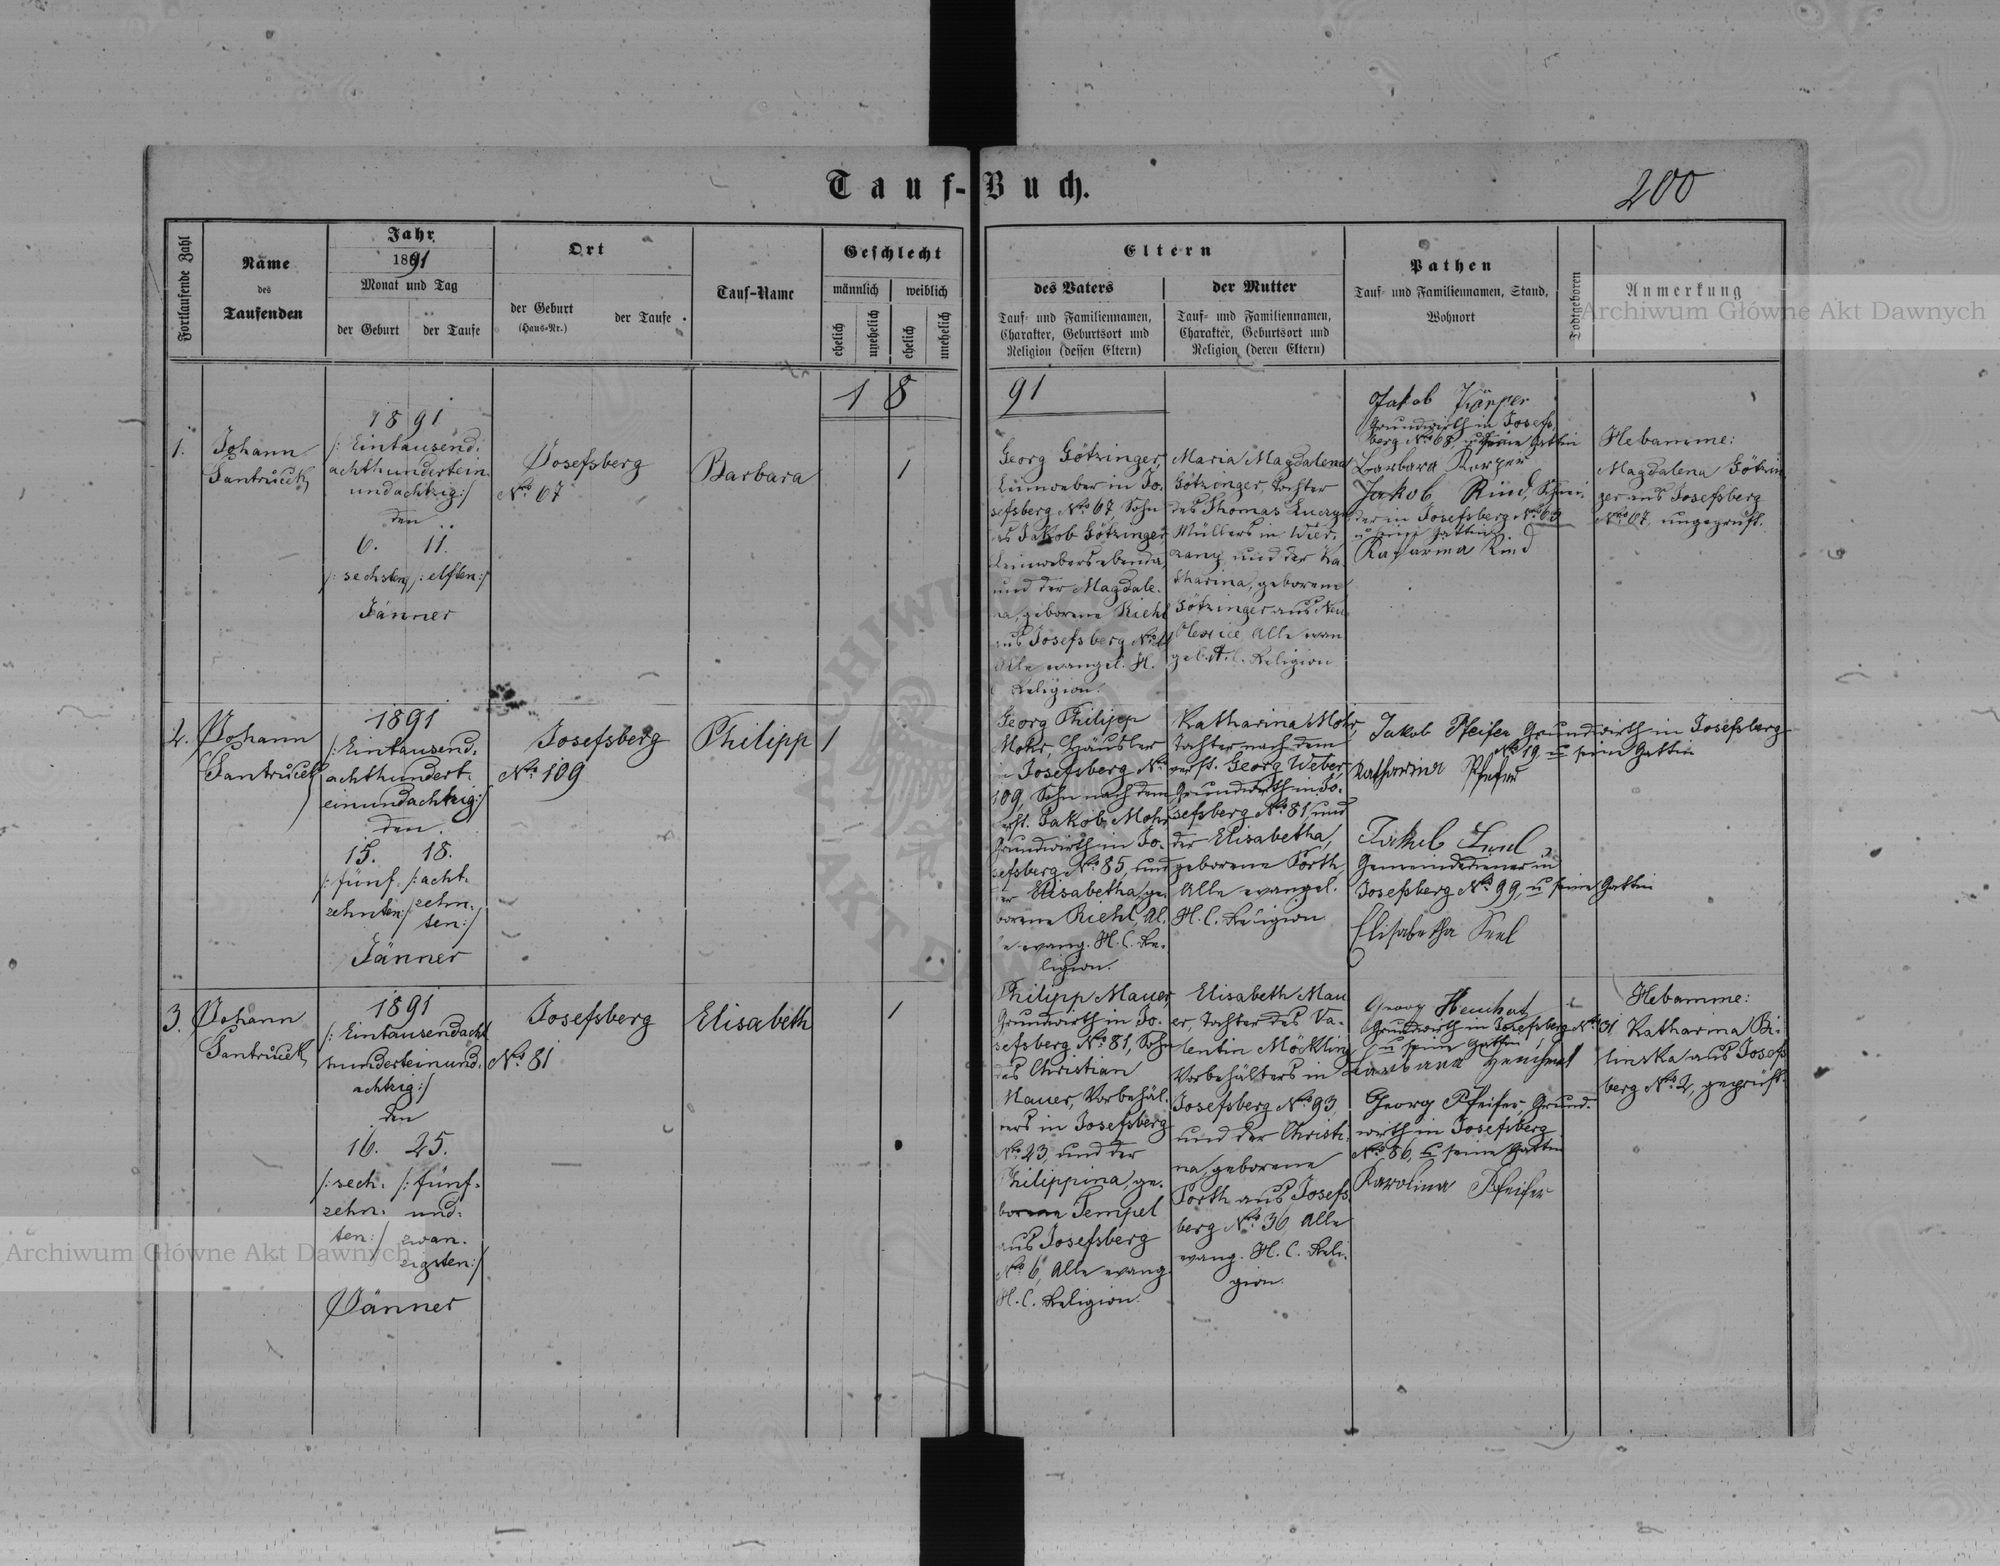 Tauf-Buch.
200
Fortlaufende Zahl
Name
des
Taufenden
Jahr
1891
Monat und Tag
der Geburt
der Taufe
Ort
der Geburt
(Haus-Nr.)
der Taufe
Tauf-Name
Geschlecht
männlich
weiblich
ehelich
unehelich
ehelich
unehelich
Eltern
des Vaters
Tauf- und Familiennamen,
Charakter, Geburtsort und
Religion (dessen Eltern)
der Mutter
Tauf- und Familiennamen,
Charakter, Geburtsort und
Religion (deren Eltern)
Pathen
Tauf- und Familiennamen, Stand,
Wohnort
Todtgeboren
Anmerkung
Archiwum Główne Akt Dawnych
18 91
1.
Johann
Santruček
1891
/: Eintausend:
achthundertein
undachtzig :/
den
6. 11.
/: sechsten, /: elften :/
Jänner
Josefsberg
No 67
Barbara
1
Georg Götzinger,
Leinweber in Jo-
sefsberg No 67, Sohn
des Jakob Götzinger
Leinwebers ebenda,
und der Magdale-
na, geborene Riehl
aus Josefsberg No
Alle evangel. H.
C. Religion.
Maria Magdalena
Götzinger, Tochter
des Thomas
Müllers in
und der Ka-
tharina, geborene
Götzinger aus Neu
Alle evan
gel. H. C. Religion
Jakob Körper
Grundwirth in Josefs-
berg No 68, u seine Gattin
Barbara Körper
Jakob Rind, Schnei-
der in Josefsberg No
u seine Gattin
Katarina Rind
Hebamme:
Magdalena Götzin
ger aus Josefsberg
No 67, ungeprüft.
2.
Johann
Santruček
1891
/: Eintausend-
achthundert-
einundachtzig :/
den
15. 18.
/: fünf- /: acht-
zehnten :/ zehn-
ten :/
Jänner
Josefsberg
No 109
Philipp
1
Georg Philipp
Mohr, Häusler
in Josefsberg No
109, Sohn nach dem
verst. Jakob Mohr
Grundwirth in Jo-
sefsberg No 85, und
der Elisabetha, ge-
borene Riehl, Al-
le evang. H. C. Re-
ligion.
Katharina Mohr,
Tochter nach dem
verst. Georg Weber,
Grundwirth in Jo-
sefsberg No 81, und
der Elisabetha,
geborene Porth,
Alle evangel.
H. C. Religion
Jakob Pfeifer Grundwirth in Josefsberg
No 19 u seine Gattin
Katharina Pfeifer
Jakob Seel,
Gemeindediener in
Josefsberg No 99, u seine Gattin
Elisabetha Seel
3.
Johann
Santruček
1891
/: Eintausendacht
hunderteinund-
achtzig :/
den
16. 25.
/: sech- /: fünf-
zehn- und-
ten :/ zwan-
zigsten :/
Jänner
Josefsberg
No 81
Elisabeth
1
Philipp Mauer,
Grundwirth in Jo-
sefsberg No 81, Sohn
des Christian
Mauer, Vorbehäl-
ters in Josefsberg
No 23, und der
Philippina, ge-
borene Tempel
aus Josefsberg
No 6, Alle evang.
H. C. Religion.
Elisabeth Mau
er, Tochter des Va-
lentin Möckling
Vorbehälters in
Josefsberg No 93,
und der Christi-
na, geborene
Porth aus Josefs
berg No 36 Alle
evang. H. C. Reli-
gion.
Georg Henchel
Grundwirth in Josefsberg No 31
u seine Gattin
Barbara Henchel
Georg Pfeifer, Grund-
wirth in Josefsberg
No 86, u seine Gattin
Karolina Pfeifer
Hebamme:
Katharina Bi-
linska aus Josefs
berg No 2, geprüft.
Archiwum Główne Akt Dawnych
ARCHIWUM
AKT D